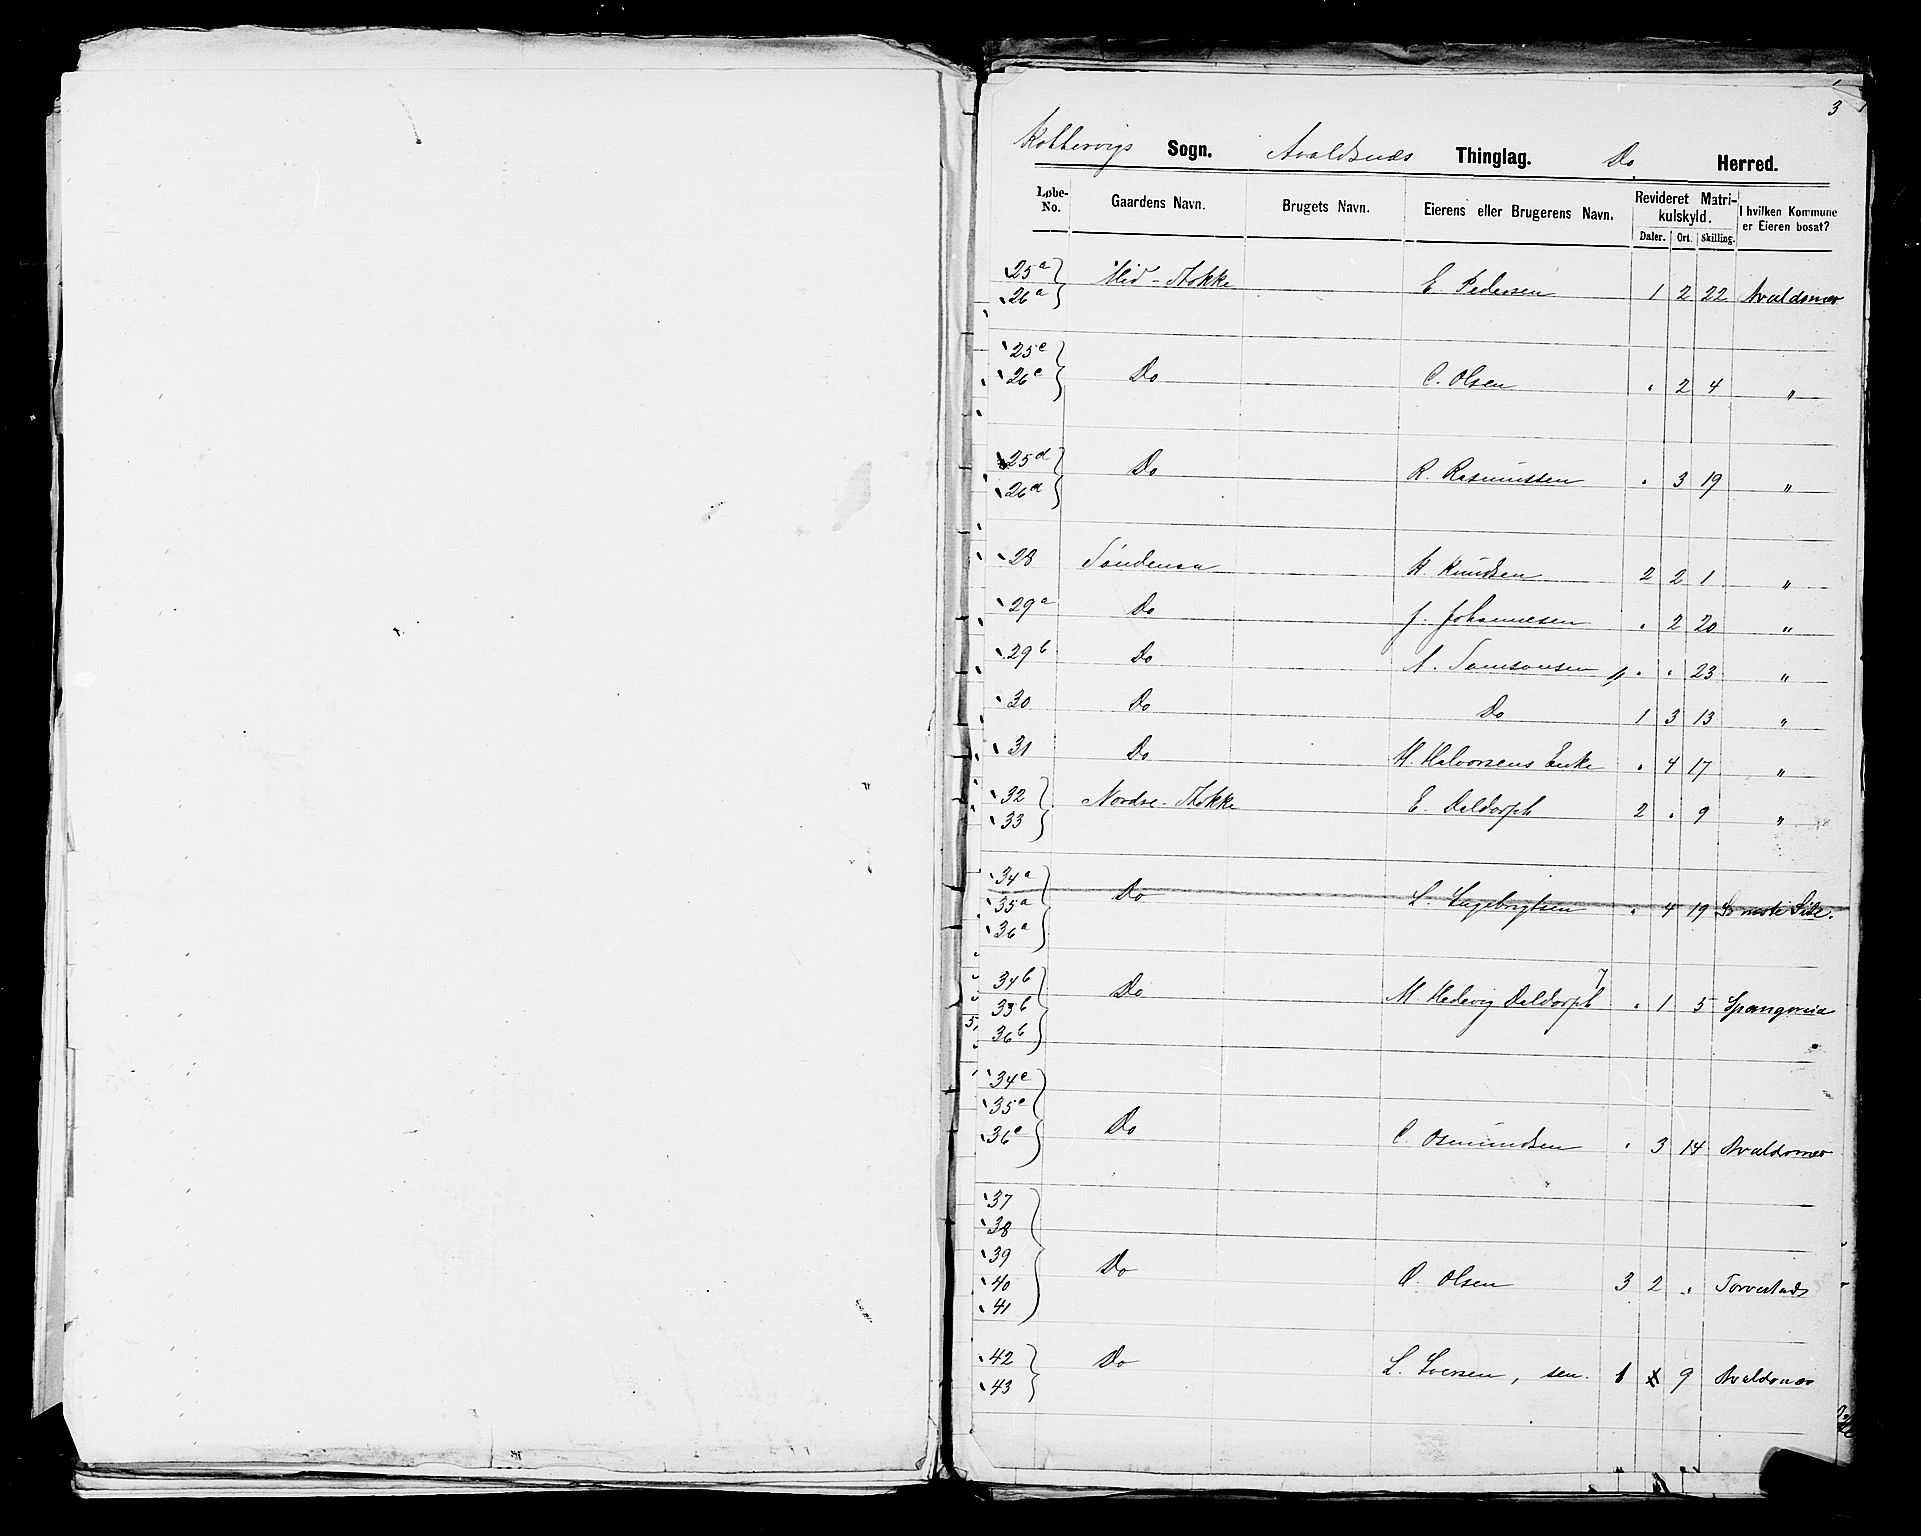 3
Kobbervigs Sogn. Avaldsnæs Thinglag. Do Herred.
Løbe-No. Gaardens Navn. Brugets Navn. Eierens eller Brugerens Navn. Revideret Matrikulskyld. Daler. Ort. Skilling. I hvilken Kommune er Eieren bosat?
25a
26a Mid-Stokke E. Pedersen 1 2 22 Avaldsnæs
25c
26c Do C. Olsen " 2 4 "
25d
26d Do R. Rasmussen " 3 19 "
28 Søndenaa K. Knudsen 2 2 1 "
29a Do J. Johannesen " 2 20 "
29b Do A. Samsonsen " " 23 "
30 Do Do 1 3 13 "
31 Do H. Halvorsens Enke " 4 17 "
32
33 Nordre-Stokke E. Daldorph 2 " 9 "
34a
35a Do L. Ingebrigtsen " 4 19 Se næste Side.
36a
34b
33b Do M. Hedevig Daldorph " 1 5 Spangereid
36b
34c
35c
36c Do C. Osmundsen " 3 14 Avaldsnæs
37
38
39 Do O. Olsen 3 2 " Torvestads
40
41
42
43 Do L. Iversen, sen. 1 9 Avaldsnæs